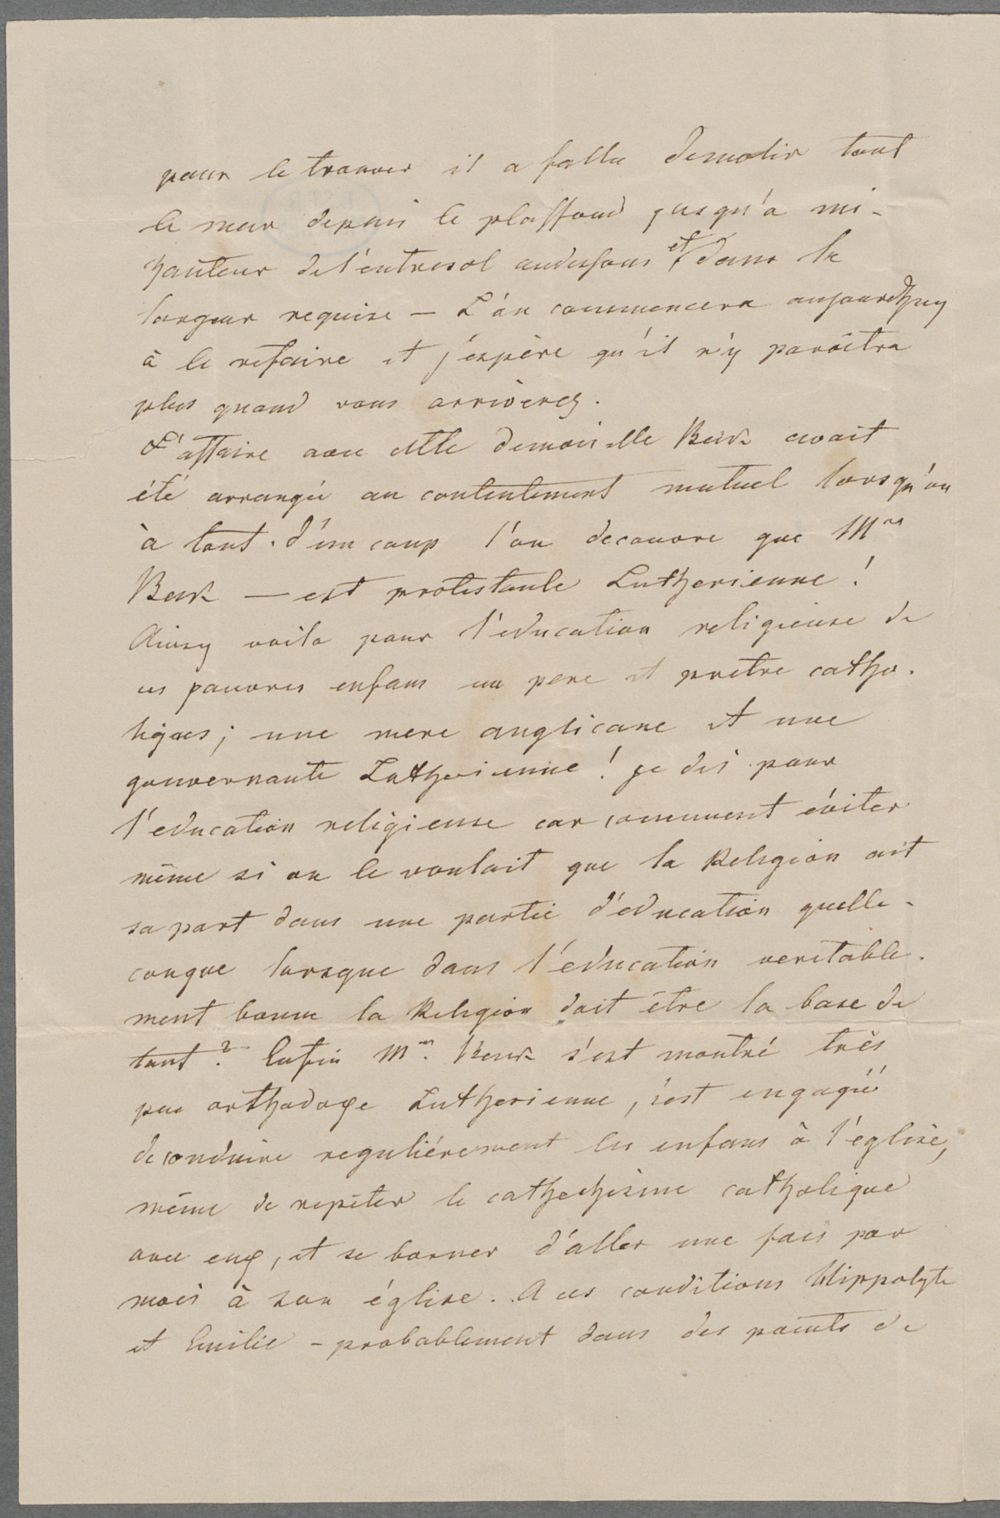 pour le trouver il a fallu demolir tout
le mur depuis le plaffond jusqu'a mi-
hauteur de l'entresol audessous et dans la
largeur requise — L'on commencera aujourdhuy
à le refaire et j'espère qu'il n'y paroîtra
plus quand vous arriverez.
L'affaire avec cette demoiselle Beck avait
été arrangée au contentement mutuel lorsqu'on
à tout d'un coup l'on decouvre que Mlle
Beck — est protestante Lutherienne!
Ainsy voila pour l'education religieuse de
ces pauvres enfans un pere et pretre catho-
liques; une mere anglicane et une
gouvernante Lutherienne! je dis pour
l'education religieuse car comment éviter
même si on le voulait que la Religion ait
sa part dans une partie d'éducation quelle-
conque lorsque dans l'éducation veritable-
ment bonne la Religion doit être la base de
tout? Enfin Mlle Beck s'est montré très
peu orthodoxe Lutherienne, s'est engagée
de conduire reguliérement les enfans à l'église,
même de repeter le cathechisme catholique
avec eux, et se borner d'aller une fois par
mois à son église. A ces conditions Hippolyte
et Emilie - probablement dans des points de